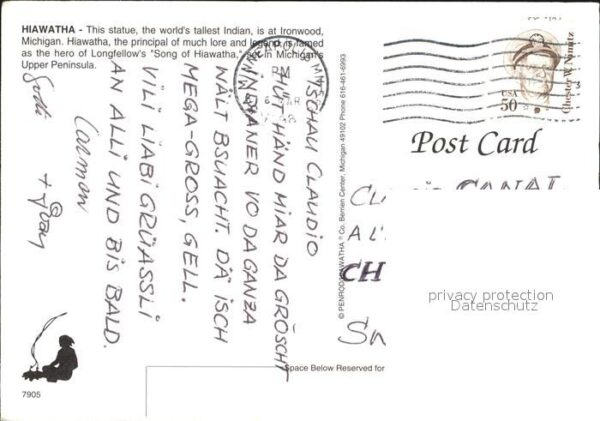 HIAWATHA - This statue, the world's tallest Indian, is at Ironwood,
Michigan. Hiawatha, the principal of much lore and legend, is famed
as the hero of Longfellow's "Song of Hiawatha," set in Michigan's
Upper Peninsula.
TSCHAU CLAUDIO
HÜT HÄND MIAR DA GRÖSCHT
INDIANER VO DA GANZA
WÄLT BSUACHT. DÄ ISCH
MEGA-GROSS, GELL.
VILI LIABI GRÜASSLI
AN ALLI UND BIS BALD.
© PENROD/HIAWATHA Co. Berrien Center, Michigan 49102 Phone 616-461-6993
USA
50
Chester W. Nimitz
Post Card
CH
privacy protection
Datenschutz
Space Below Reserved for
7905